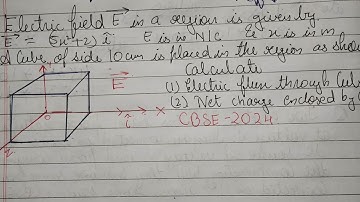 Electric field E in a region is given by
E = (5x²+2) î E is in N/C & x is in m
A Cube of side 10 cm is placed in the region as show
Calculate
(1) Electric flux through Cub
(2) Net charge enclosed by
E
O
î
x
CBSE-2024